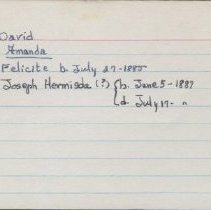 David
Amanda
Felicite b. July 27-1885
Joseph Hermisda (?) { b. June 5-1887
d July 17- "